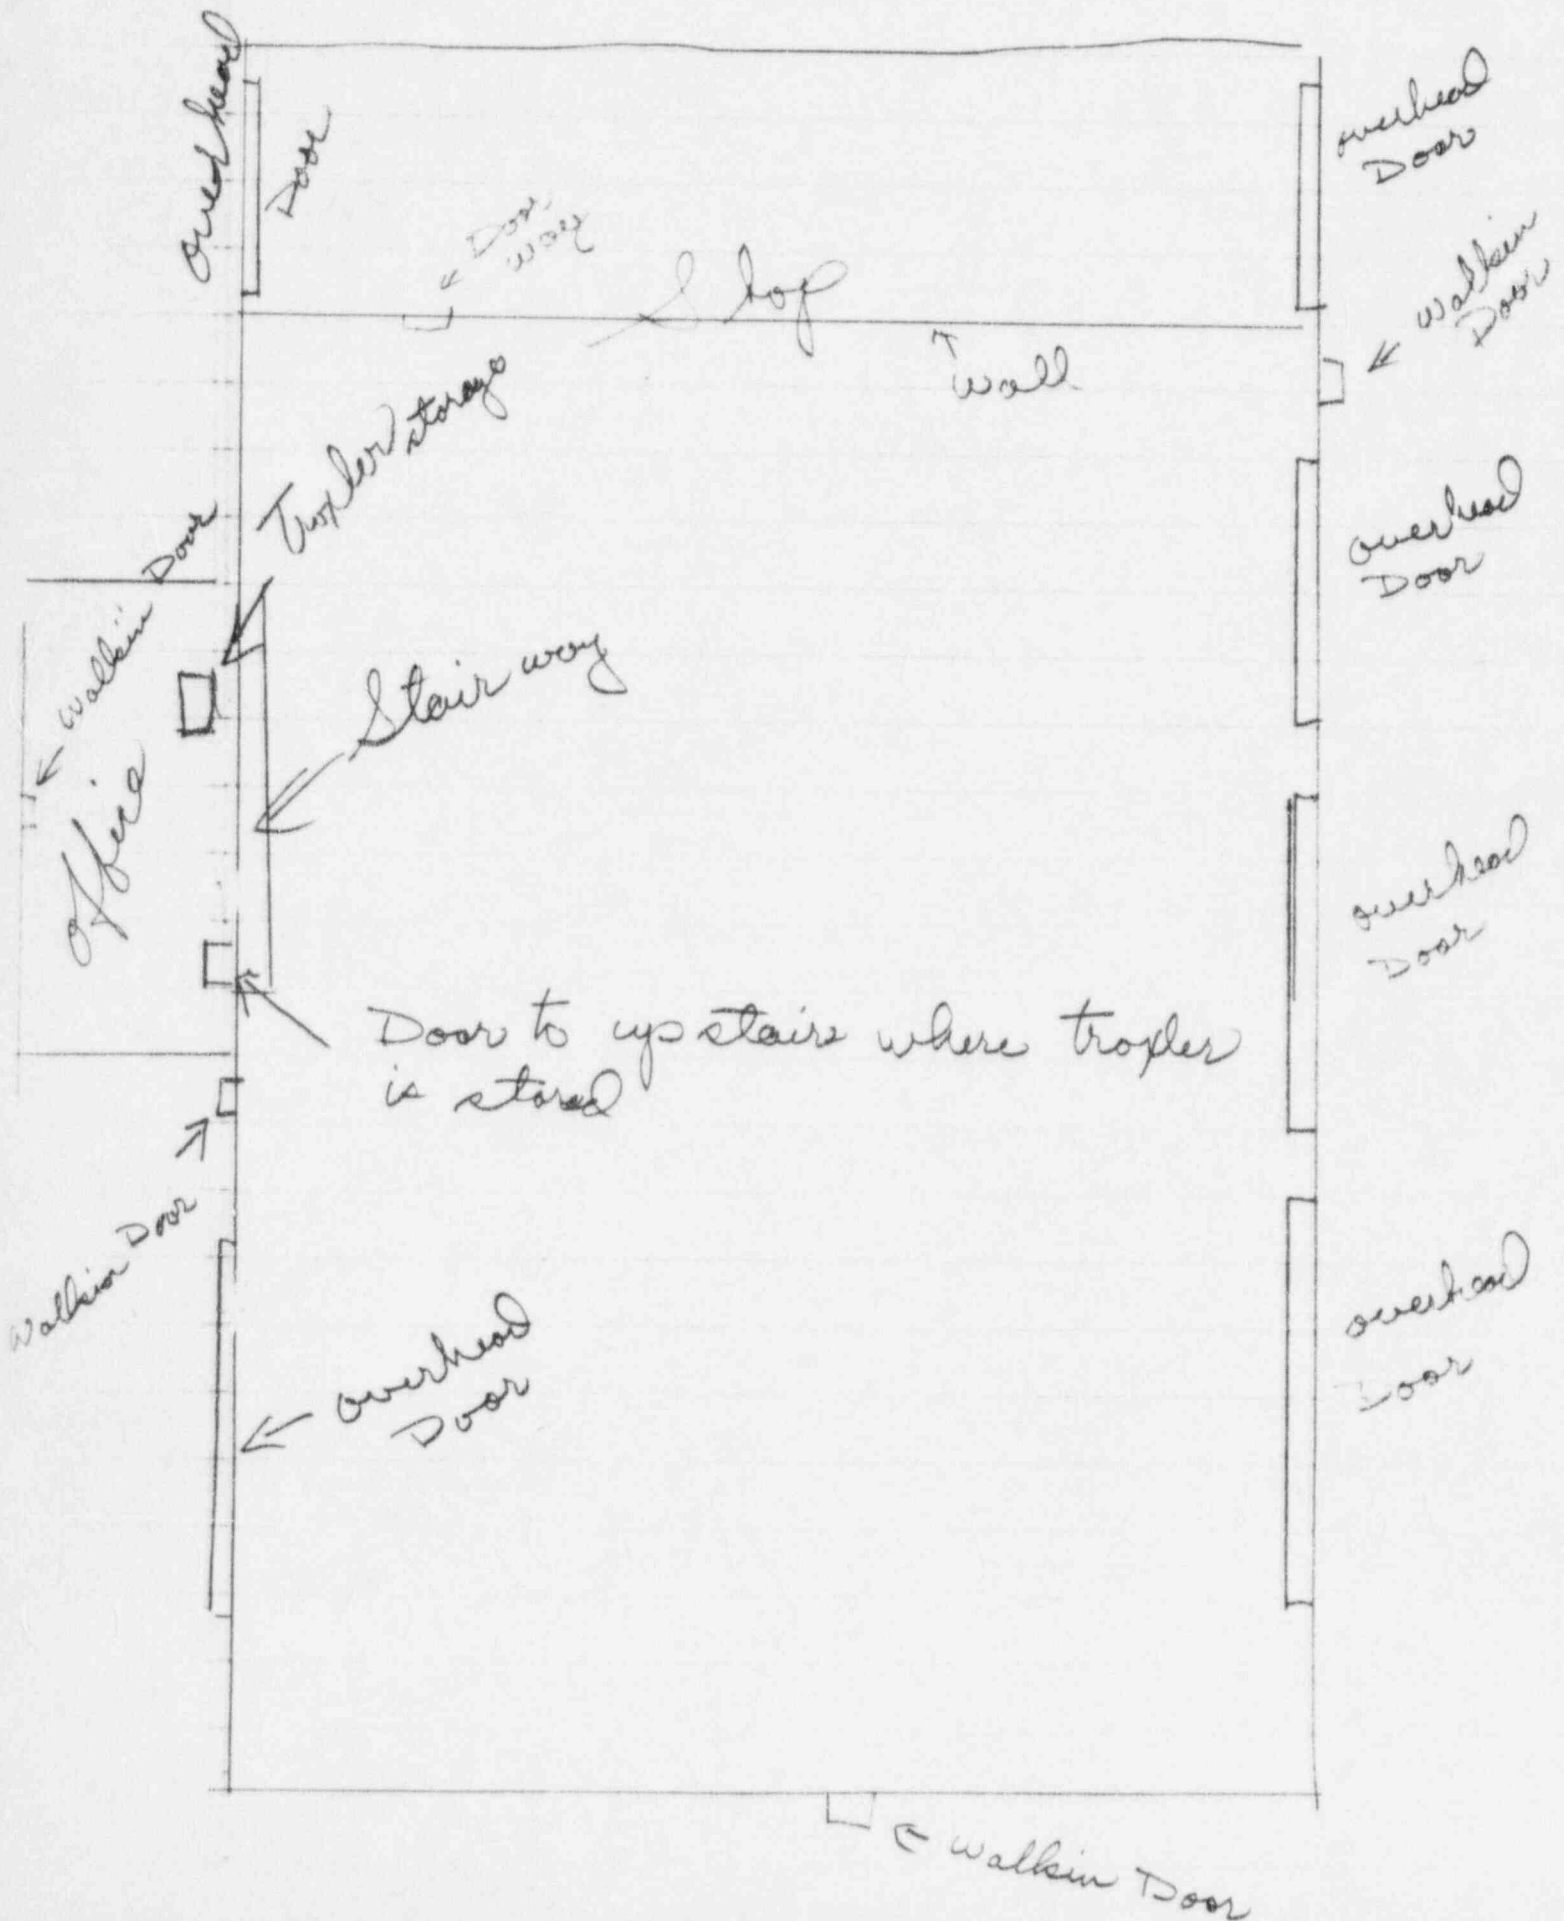 overhead
Door
overhead
Door
Door
way
Shop
Walkin
Door
Wall
Troxler storage
overhead
Door
Walkin Door
Stair way
Office
overhead
Door
Door to upstairs where troxler
is stored
Walkin Door
overhead
Door
overhead
Door
Walkin Door